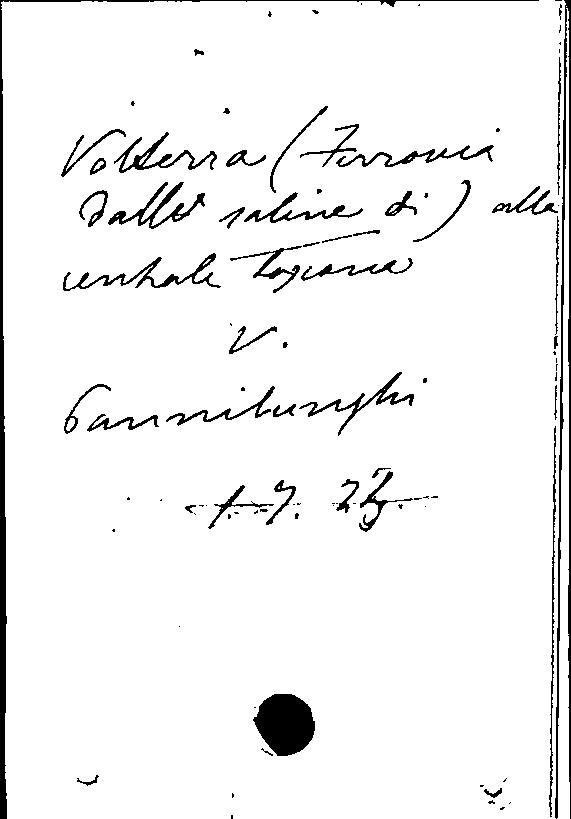 Volterra (Ferrovia
dalle saline di) alla
centrale Toscana
V.
Pannilunghi
1. 7. 22